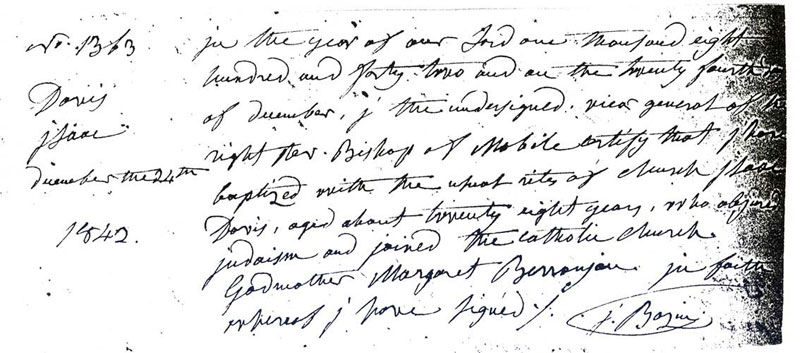 No. 1363
Davis
jsaac
december the 24th
1842.
jn the year of our Lord one thousand eight
hundred and forty two and on the twenty fourth
of december, j the undersigned, vicar general of the
right rev. Bishop of Mobile certify that j have
baptized with the usual rites of church jsaac
Davis, aged about twenty eight years, who abjured
judaism and joined the catholic church.
Godmother Margaret jn faith
whereof j have signed